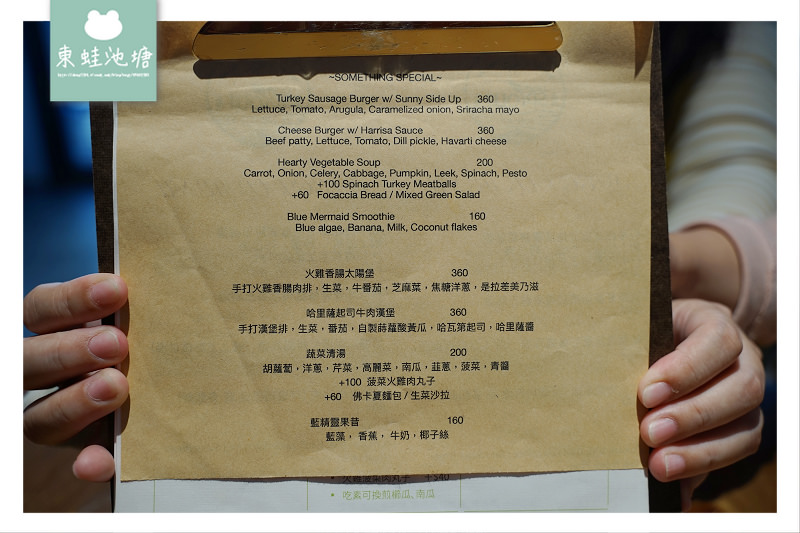 東蛙池塘
~SOMETHING SPECIAL~
Turkey Sausage Burger w/ Sunny Side Up 360
Lettuce, Tomato, Arugula, Caramelized onion, Sriracha mayo
Cheese Burger w/ Harrisa Sauce 360
Beef patty, Lettuce, Tomato, Dill pickle, Havarti cheese
Hearty Vegetable Soup 200
Carrot, Onion, Celery, Cabbage, Pumpkin, Leek, Spinach, Pesto
+100 Spinach Turkey Meatballs
+60 Focaccia Bread / Mixed Green Salad
Blue Mermaid Smoothie 160
Blue algae, Banana, Milk, Coconut flakes
火雞香腸太陽堡 360
手打火雞香腸肉排，生菜，牛番茄，芝麻葉，焦糖洋蔥，是拉差美乃滋
哈里薩起司牛肉漢堡 360
手打漢堡排，生菜，番茄，自製蒔蘿酸黃瓜，哈瓦第起司，哈里薩醬
蔬菜清湯 200
胡蘿蔔，洋蔥，芹菜，高麗菜，南瓜，韮蔥，菠菜，青醬
+100 菠菜火雞肉丸子
+60 佛卡夏麵包 / 生菜沙拉
藍精靈果昔 160
藍藻， 香蕉， 牛奶，椰子絲
• 火雞菠菜肉丸子 +$40
• 吃素可換煎櫛瓜,南瓜